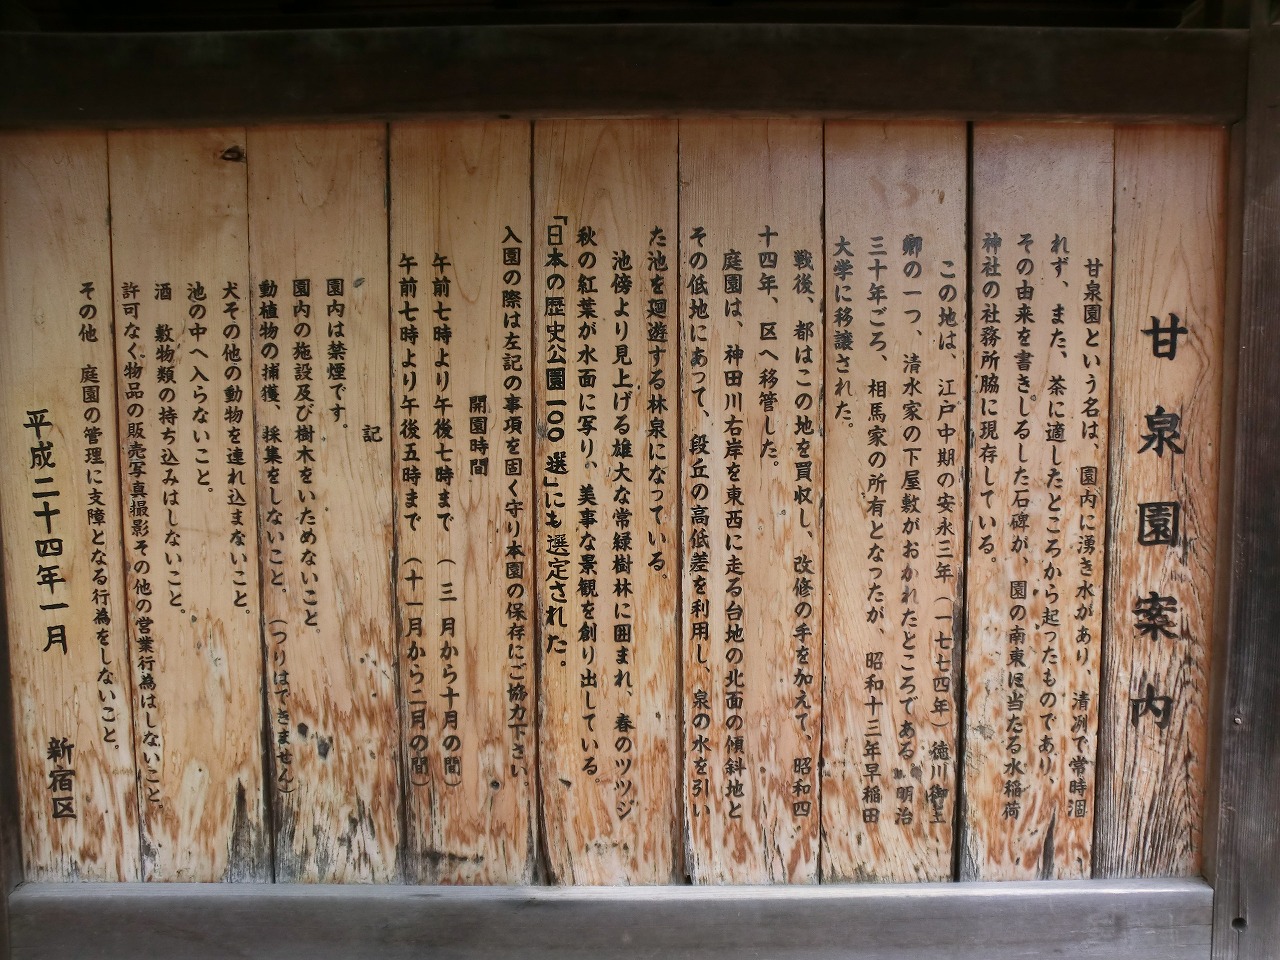 甘泉園案内
甘泉園という名は、園内に湧き水があり、清冽で常時涸
れず、また、茶に適したところから起ったものであり、
その由来を書きしるした石碑が、園の南東に当たる水稲荷
神社の社務所脇に現存している。
この地は、江戸中期の安永三年(一七七四年)徳川御三
卿の一つ、清水家の下屋敷がおかれたところである。明治
三十年ごろ、相馬家の所有となったが、昭和十三年早稲田
大学に移譲された。
戦後、都はこの地を買収し、改修の手を加えて、昭和四
十四年、区へ移管した。
庭園は、神田川右岸を東西に走る台地の北面の傾斜地と
その低地にあって、段丘の高低差を利用し、泉の水を引い
た池を廻遊する林泉になっている。
池傍より見上げる雄大な常緑樹林に囲まれ、春のツツジ
秋の紅葉が水面に写り、美事な景観を創り出している
「日本の歴史公園一〇〇選」にも選定された。
入園の際は左記の事項を固く守り本園の保存にご協力下さい。
開園時間
午前七時より午後七時まで(三月から十月の間)
午前七時より午後五時まで(十一月から二月の間)
記
園内は禁煙です。
園内の施設及び樹木をいためないこと。
動植物の捕獲、採集をしないこと。(つりはできません)
犬その他の動物を連れ込まないこと。
池の中へ入らないこと。
酒 敷物類の持ち込みはしないこと。
許可なく物品の販売写真撮影その他の営業行為はしないこと。
その他 庭園の管理に支障となる行為をしないこと。
平成二十四年一月 新宿区